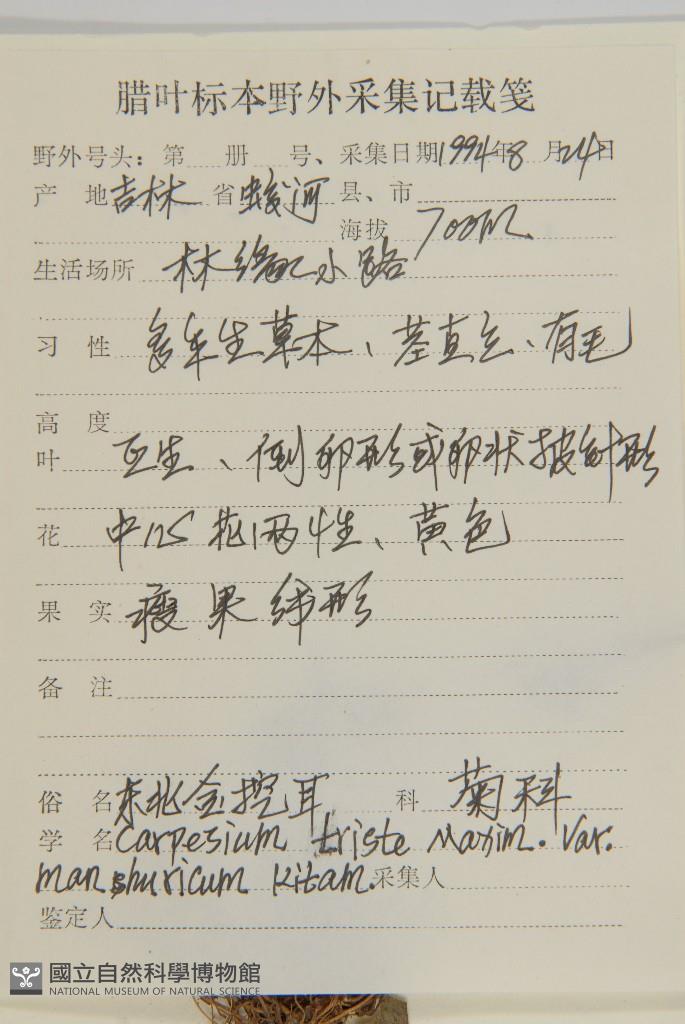 腊叶标本野外采集记载笺
野外号头：第 册 号、采集日期1994年8月24日
产 地吉林省蛟河县、市
海拔 700m.
生活场所 林缘 小路
习 性 多年生草本、茎直立、有毛
高 度
叶 互生、倒卵形或卵状披针形
花 中 花两性、黄色
果 实 瘦果线形
备 注
俗 名东北金挖耳 科 菊科
学 名Carpesium triste Maxim. var.
manshuricum Kitam.采集人
鉴定人
國立自然科學博物館
NATIONAL MUSEUM OF NATURAL SCIENCE